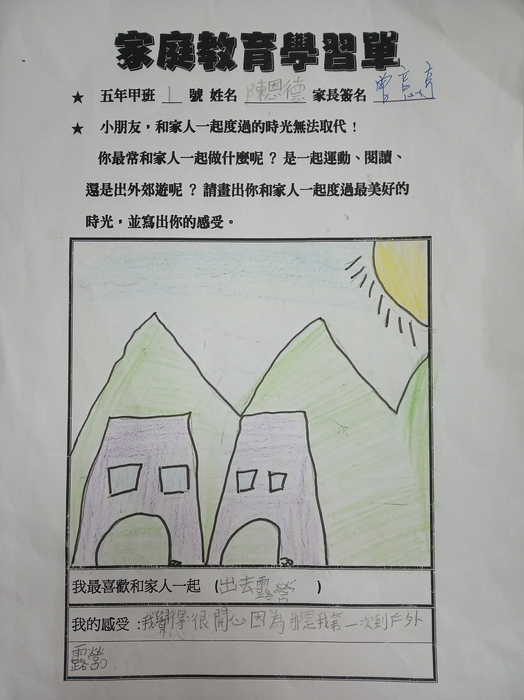 家庭教育學習單
★ 五年甲班 1 號 姓名 陳恩德 家長簽名
★ 小朋友，和家人一起度過的時光無法取代！
你最常和家人一起做什麼呢？是一起運動、閱讀、
還是出外郊遊呢？請畫出你和家人一起度過最美好的
時光，並寫出你的感受。
我最喜歡和家人一起（出去露營）
我的感受：我覺得很開心因為那是我第一次到戶外
露營。